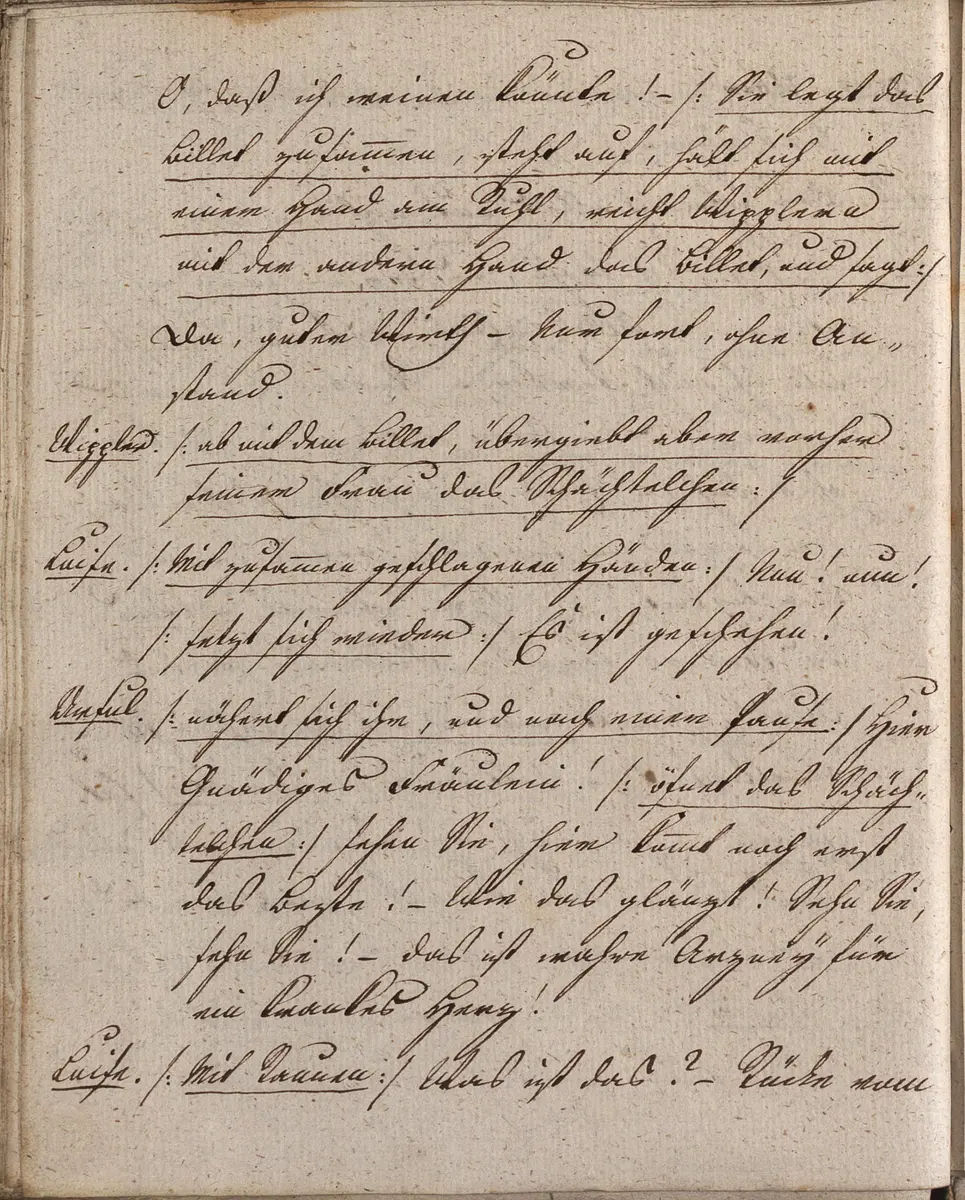 O, daß ich weinen könnte! – /: Sie legt das
Billet zusam̅en, steht auf, hält sich mit
einer Hand am Stuhl, reicht Wipplern
mit der andern Hand das Billet, und sagt :/
Da, guter Wirth – Nur fort, ohne An„
stand.
Wippler. /: ab mit dem Billet, übergiebt aber vorher
seiner Frau das Schächtelchen :/
Luise. /: Mit zusam̅en geschlagenen Händen :/ Nun! nun!
/: setzt sich wieder :/ Es ist geschehen!
Ursul. /: nähert sich ihr, und nach einer Pause :/ Hier
Gnädiges Fräulein! /: öfnet das Schäch„
telchen :/ sehen Sie, hier kom̅t noch erst
das Beßte! – Wie das glänzt! Sehn Sie,
sehn Sie! – das ist wahre Arzney für
ein krankes Herz!
Luise. /: Mit Staunen :/ Was ist das? – Stücke vom